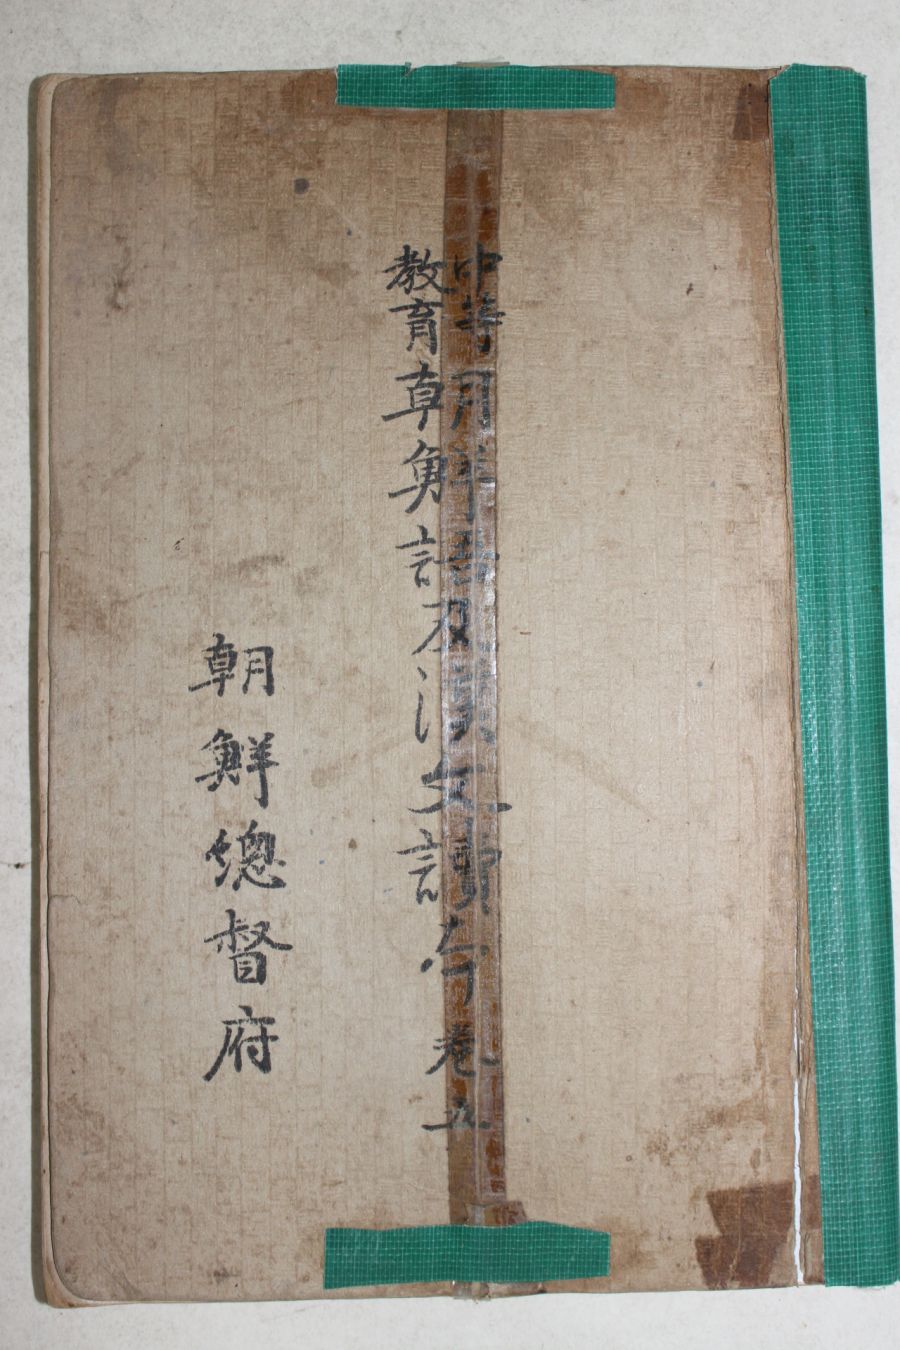 中等教育 朝鮮語及漢文讀本 卷五
朝鮮總督府